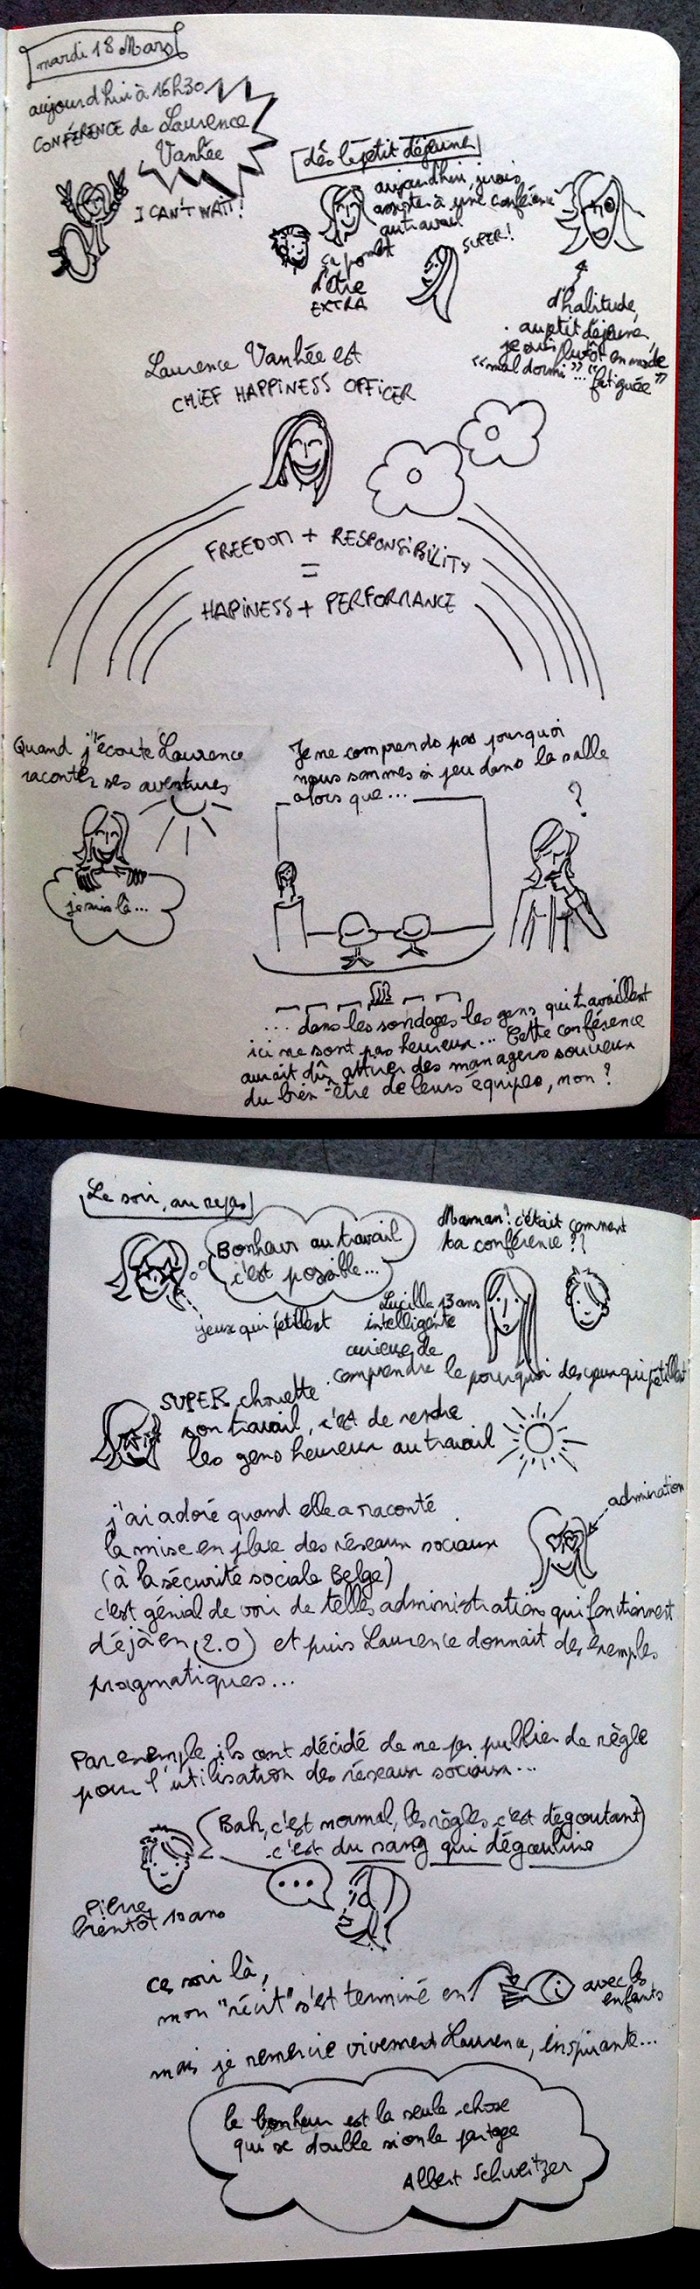 mardi 18 Mars
aujourd'hui à 16h30
CONFÉRENCE de Laurence
Vanhée
I CAN'T WAIT!
dès le petit déjeuné
aujourd'hui, j'irais
assister à une conférence
au travail
ça promet
d'être
EXTRA
SUPER!
d'habitude,
au ptit déjeuné,
je suis plutôt en mode
"mal dormi"... "fatiguée"
Laurence Vanhée est
CHIEF HAPPINESS OFFICER
FREEDOM + RESPONSIBILITY
=
HAPINESS + PERFORMANCE
Quand j'écoute Laurence
raconter ses aventures
je suis là...
Je ne comprends pas pourquoi
nous sommes si peu dans la salle
alors que...
?
... dans les sondages les gens qui travaillent
ici ne sont pas heureux... Cette conférence
aurait dû attirer des managers soucieux
du bien-être de leurs équipes, non?
Le soir, au repas
Bonheur au travail
c'est possible...
yeux qui pétillent
Maman! c'était comment
ta conférence??
Lucille 13 ans
intelligente
curieuse de
comprendre le pourquoi des yeux qui pétillent
SUPER, chouette
son travail, c'est de rendre
les gens heureux au travail
j'ai adoré quand elle a raconté
la mise en place des réseaux sociaux
(à la sécurité sociale Belge)
admiration
c'est génial de voir de telles administrations qui fonctionnent
déjà en 2.0 et puis Laurence donnait des exemples
pragmatiques...
Par exemple, ils ont décidé de ne pas publier de règle
pour l'utilisation des réseaux sociaux...
Bah, c'est normal, les règles c'est dégoutant
c'est du sang qui dégouline
...
Pierre,
bientôt 10 ans
ce soir là,
mon "récit" s'est terminé en
avec les
enfants
mais je remercie vivement Laurence, inspirante...
le bonheur est la seule chose
qui se double si on le partage
Albert Schweitzer